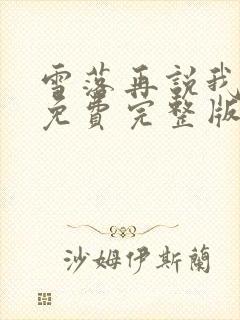 雪落再説我
免費完整版
沙姆伊斯蘭